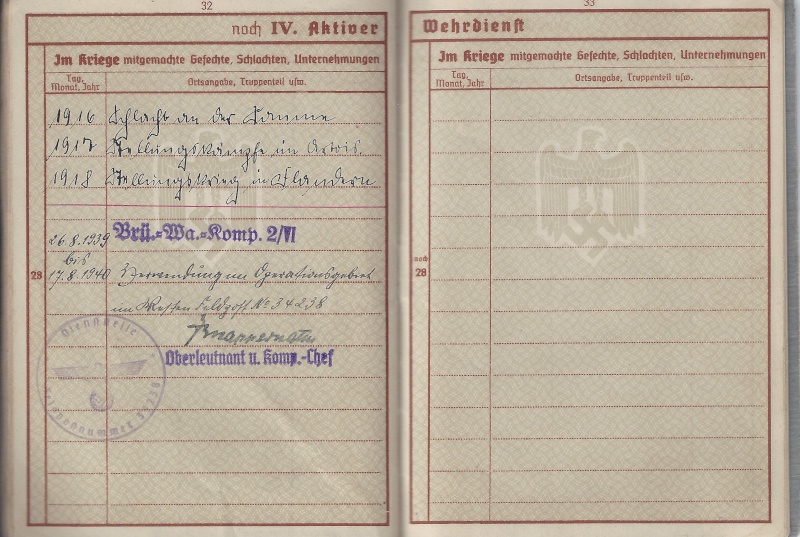 32
noch IV. Aktiver
Im Kriege mitgemachte Gefechte, Schlachten, Unternehmungen
Tag, Monat, Jahr
Ortsangabe, Truppenteil usw.
1916 Schlacht an der Somme
1917 Stellungskämpfe im Artois.
1918 Stellungskrieg in Flandern
26.8.1939 Brü.-Wa.-Komp. 2/VI
bis
28
17.8.1940 Verwendung im Operationsgebiet
im Westen Feldpost No 34238
Oberleutnant u. Komp.-Chef
Dienststelle
Feldpostnummer
33
Wehrdienst
Im Kriege mitgemachte Gefechte, Schlachten, Unternehmungen
Tag, Monat, Jahr
Ortsangabe, Truppenteil usw.
noch
28